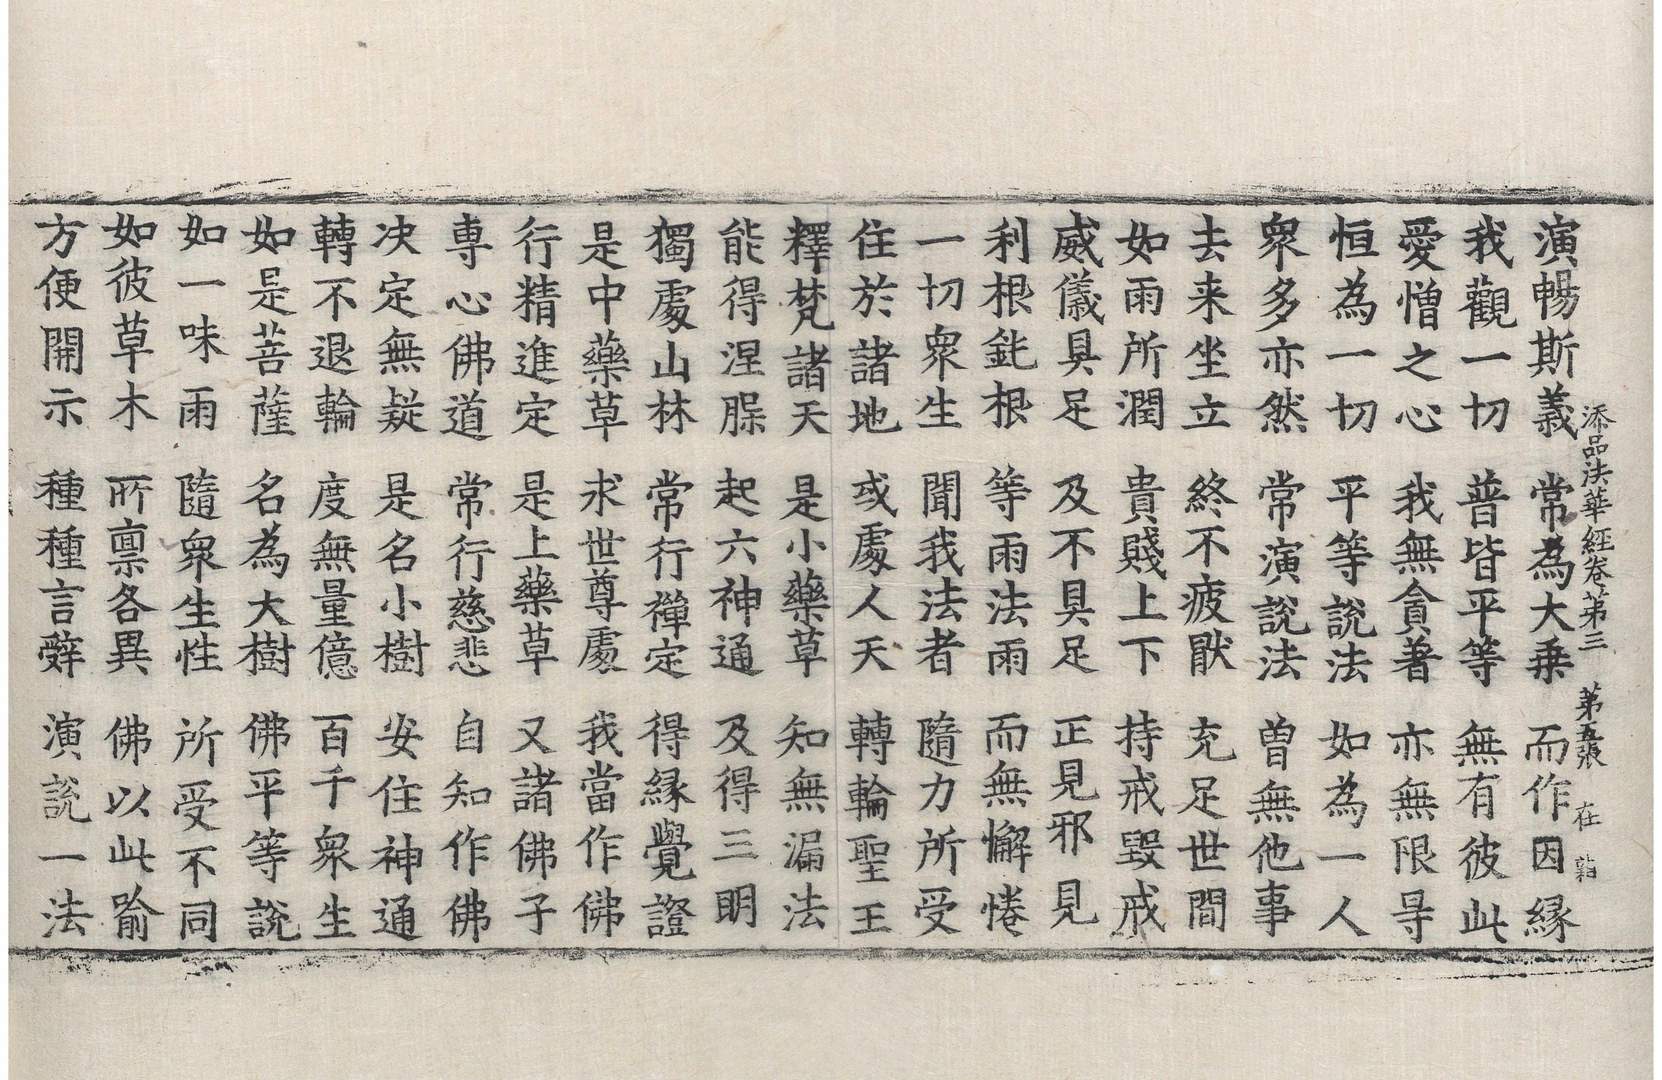 添品法華經卷第三 第五張 在
演暢斯義 常為大乗 而作因緣
我觀一切 普皆平等 無有彼此
愛憎之心 我無貪著 亦無限㝵
恒為一切 平等說法 如為一人
衆多亦然 常演說法 曽無他事
去来坐立 終不疲猒 充足世間
如雨所潤 貴賤上下 持戒毀戒
威儀具足 及不具足 正見邪見
利根鈍根 等雨法雨 而無懈惓
一切衆生 聞我法者 隨力所受
住於諸地 或處人天 轉輪聖王
釋梵諸天 是小藥草 知無漏法
能得涅槃 起六神通 及得三明
獨處山林 常行禪定 得緣覺證
是中藥草 求世尊處 我當作佛
行精進定 是上藥草 又諸佛子
専心佛道 常行慈悲 自知作佛
决定無疑 是名小樹 安住神通
轉不退輪 度無量億 百千衆生
如是菩薩 名為大樹 佛平等說
如一味雨 隨衆生性 所受不同
如彼草木 所禀各異 佛以此喻
方便開示 種種言辭 演說一法